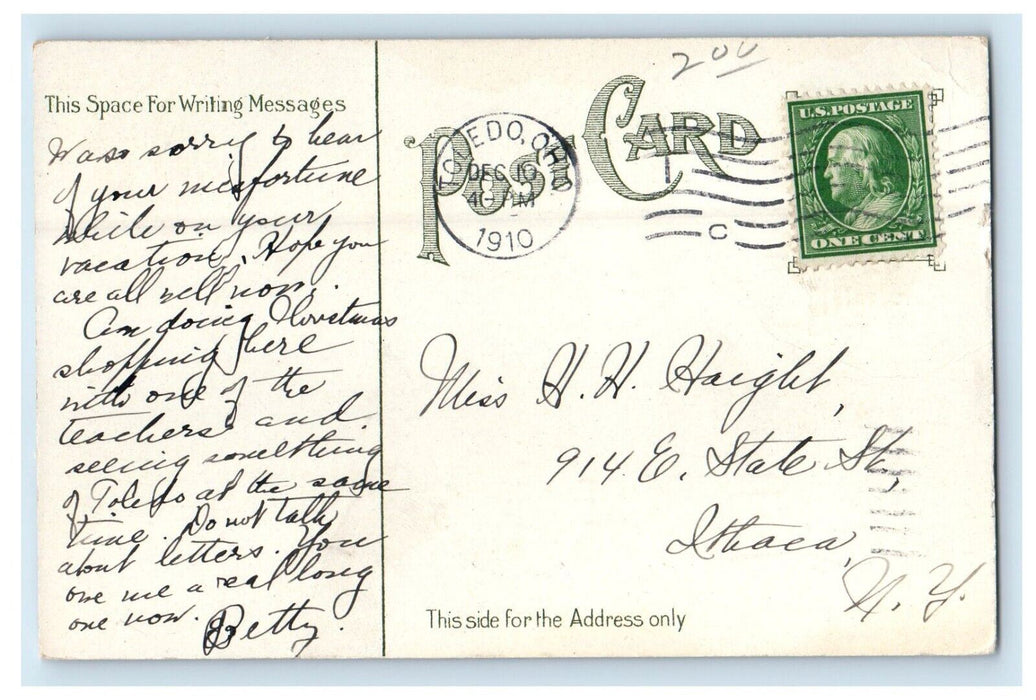 This Space For Writing Messages
Was so sorry to hear
of your misfortune
while on your
vacation. Hope you
are all well now.
Am doing Christmas
shopping here
with one of the
teachers and
seeing something
of Toledo at the same
time. Do not talk
about letters. You
owe me a real long
one now.
Betty.
POST CARD
200
TOLEDO, OHIO
DEC 10
4 PM
1910
C
U.S. POSTAGE
ONE CENT
Miss H. H. Haight,
914 E. State St,
Ithaca,
N. Y.
This side for the Address only